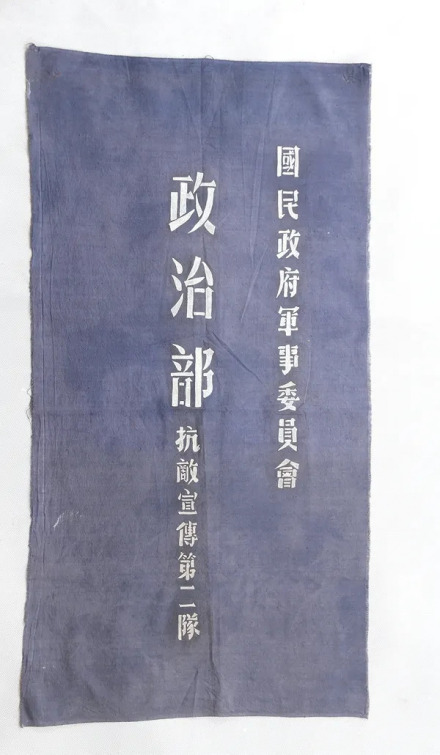 國民政府軍事委員會
政治部抗敵宣傳第二隊